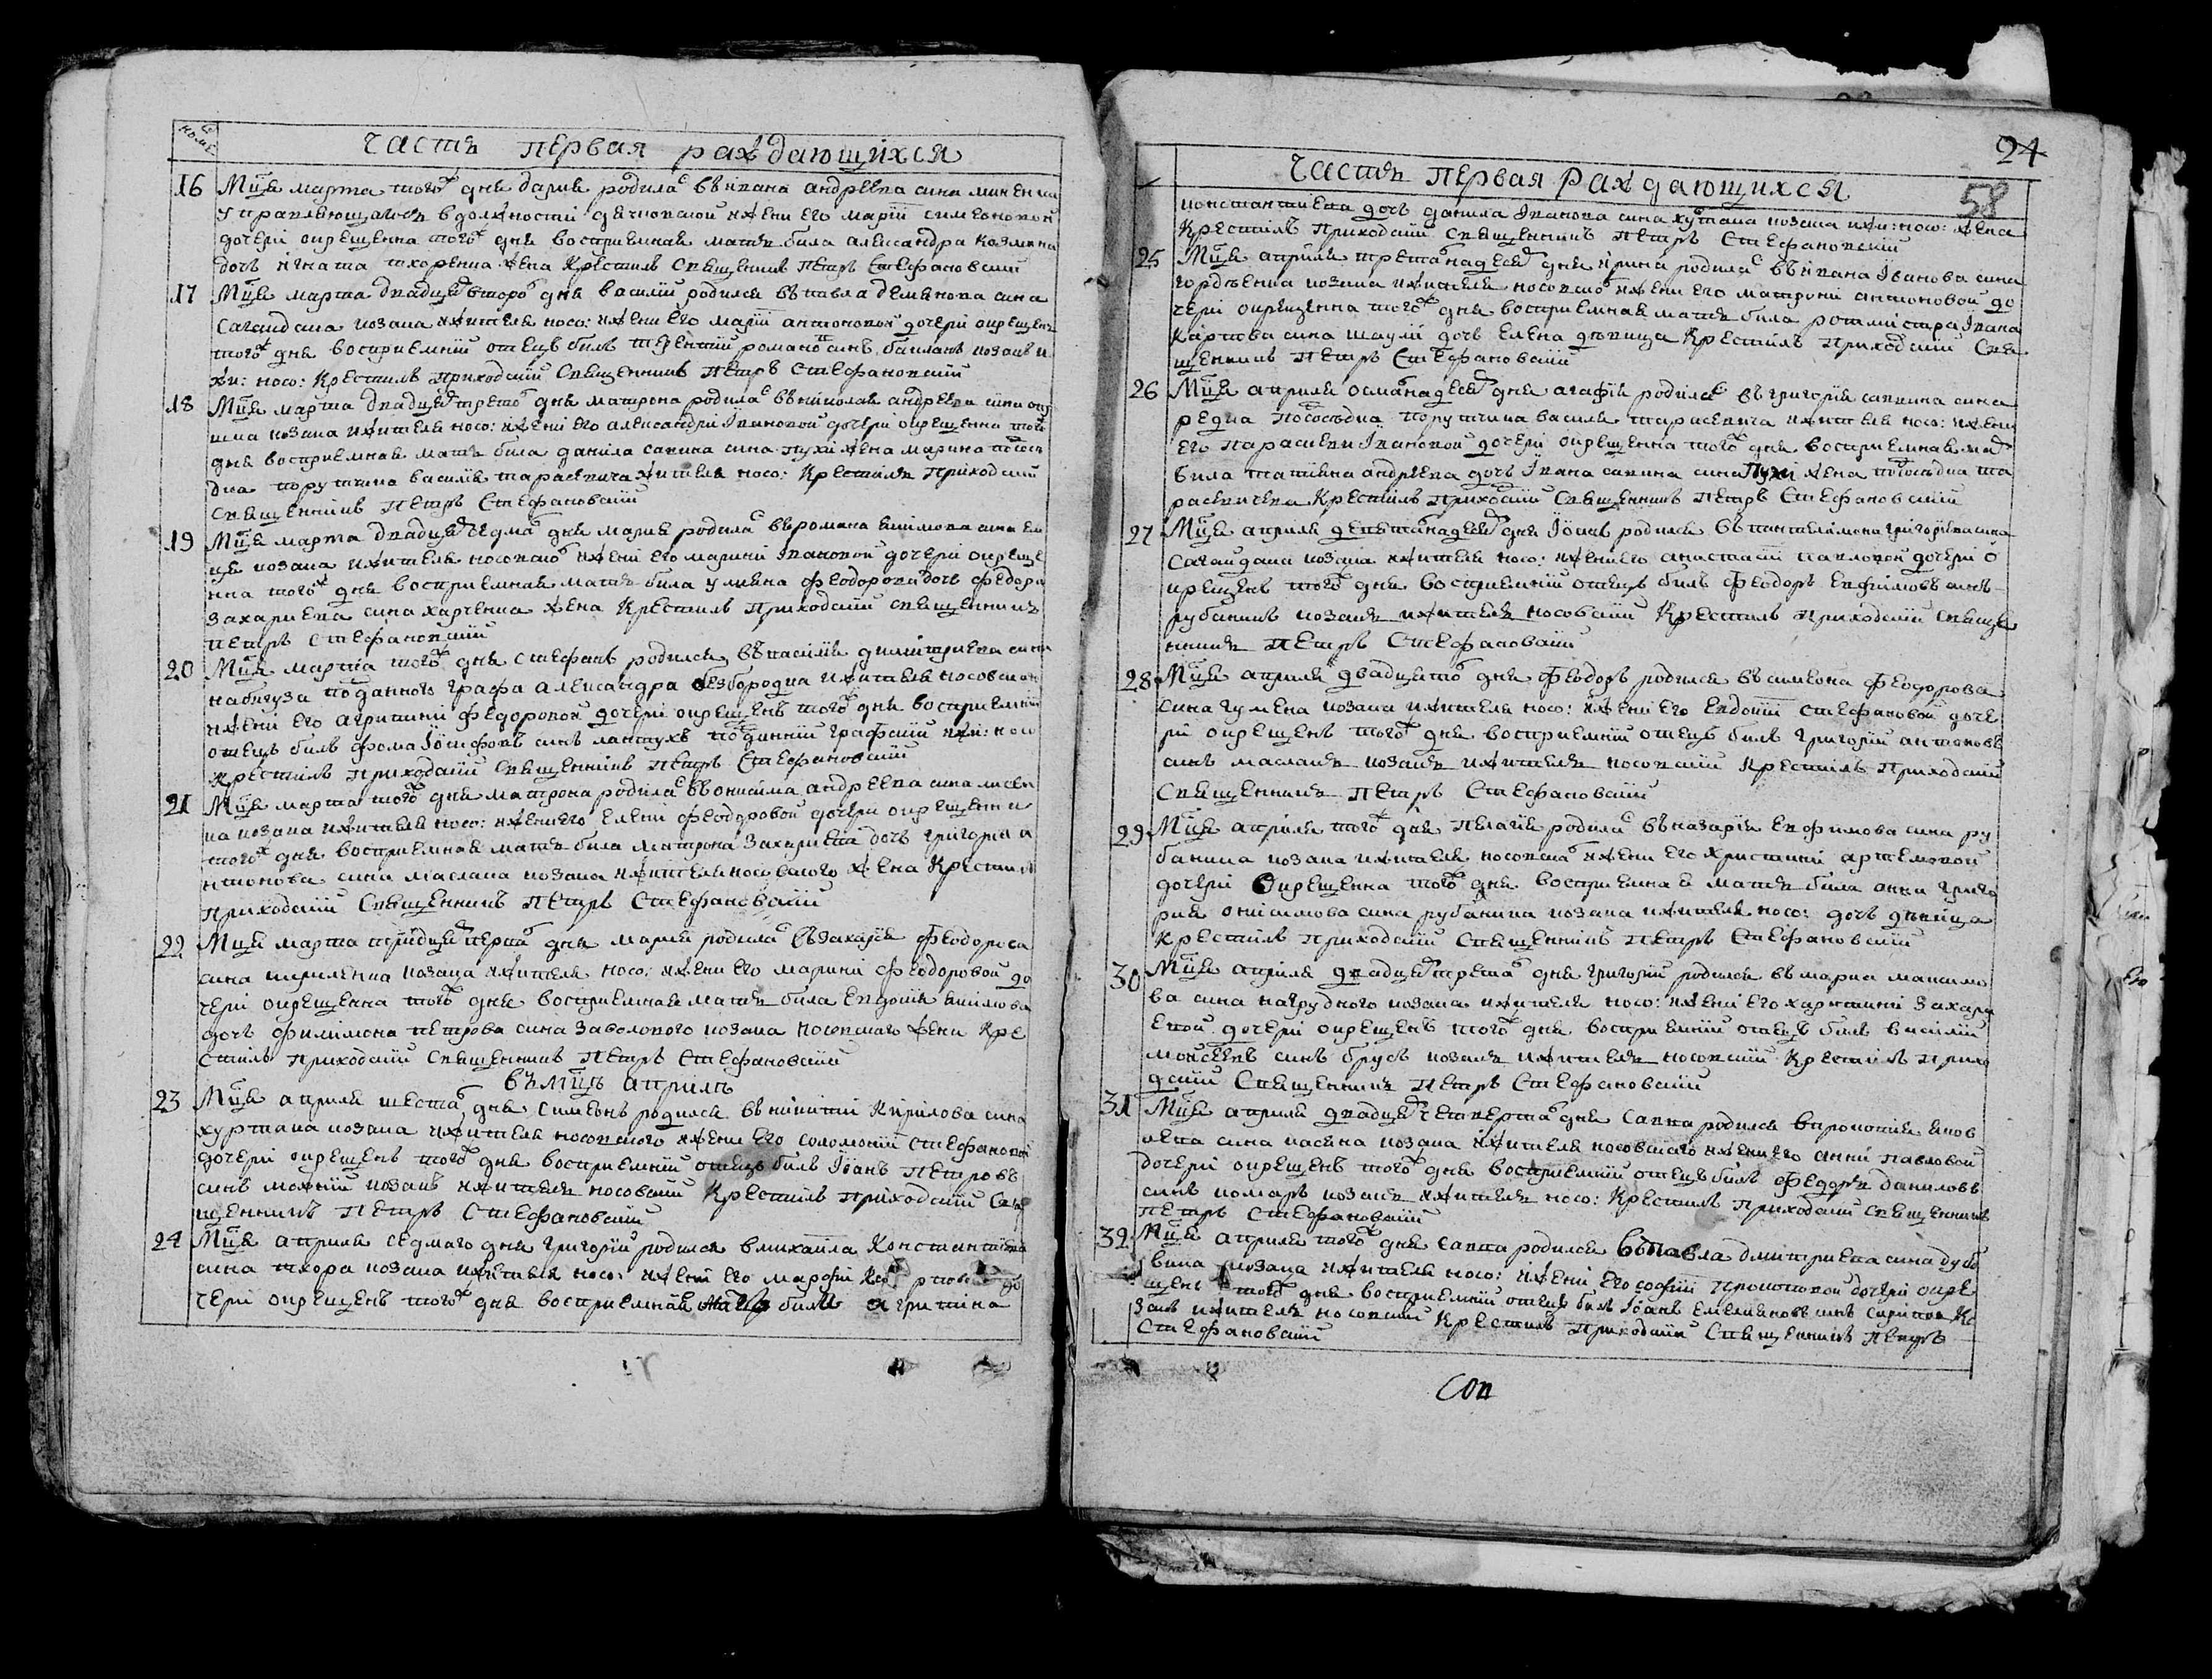 номе
часть первая раждающихся
16 Мца марта того ж дня дария родилас в ывана андреева сина
управляющагося в должности дячковской и жени его марии симеоновой
дочери окрещенна того ж дня восприемная мать била александра козмина
дочь игната тхоренка жена Крестил Священник Петръ Стефановский
17 Мца марта двадцет второ дня василий родился в павла деминова сина
Сагайдака козака и жителя носо: и жени его марии антоновой дочери окрещенъ
того ж дня восприемний отецъ билъ терентий романов синъ козакъ и
жи: носо: Крестилъ приходский Священникъ Петръ Стефановский
18 Мца марта двадцет трето дня матрона родилас в николая андреева сина
козака и жителя носо: и жени его александри Iвановой дочери окрещенна того
дня восприемная мать била данила савина сина пухи жена марина подсосе
дка порутчика василия тарасевича жителя носо: Крестилъ приходский
Священникъ Петръ Стефановский
19 Мца марта двадцет седма дня мария родилас в романа
ця козака и жителя носовско и жени его марини Iвановой дочери окреще
нна того ж дня восприемная мать била улияна феодорова дочь федора
захариева сина харченка жена Крестилъ приходский священникъ
Петръ Стефановский
20 Мца марта того ж дня Стефанъ родился в василия димитриева сина
набигуза подданного графа александра безбородка и жителя носовско
и жени его агрипини феодоровой дочери окрещенъ того ж дня восприемний
отецъ билъ фома Iосифовъ синъ лантухъ подданний графский и жи: носо
крестилъ приходский Священникъ Петръ Стефановский
21 Мца марта того ж дня матрона родилас в онисима андреева сина
ка козака и жителя носо: и жени его елени феодоровой дочери окрещенна
того ж дня восприемная мать била матрона Захариева дочь григория а
нтонова сина маслака козака и жителя носовского жена Крестилъ
приходский Священникъ Петръ Стефановский
22 Мца марта тридцет перва дня мария родилас в захария Феодорова
сина кириленка козака и жителя носо: и жени его марини феодоровой до
чери окрещенна того ж дня восприемная мать била евдокия
дочь филимона петрова сина Заволокого козака носовского жена Кре
стилъ приходский Священникъ Петръ Стефановский
въ мцъ априль
23 Мца априля шеста дня Симеонъ родился в никити Кирилова сина
хуртака козака и жителя носовского и жени его соломонии Стефановой
дочери окрещенъ того ж дня восприемний отецъ билъ Iоанъ Петровъ
синъ козакъ и житель носовский Крестилъ приходский Свя
щенникъ Петръ Стефановский
24 Мца априля седмаго дня григорий родился в михаила Константинова
сина тхора козака и жителя носо: и жени его марфи до
чери окрещенъ того ж дня восприемная мать била агрипина
24
58
часть первая раждающихся
константиева дочь данила Iванова сина хуртака козака и жи: носо: жена
Крестилъ приходский Священникъ Петръ Стефановский
25 Мца априля третонадесят дня ирина родилас в ывана Iванова сина
гордеенка козака и жителя носовско и жени его матрони антоновой до
чери окрещенна того ж дня восприемная мать била ротмистра Iвана
карпова сина шаули дочь елена девица Крестилъ приходский Свя
щенникъ Петръ Стефановский
26 Мца априля османадесят дня агафия родилас в григория савина сина
редка подсоседка порутчика василя тарасевича и жителя носо: и жени
его параскеви Iвановой дочери окрещенна того ж дня восприемная мать
била татияна андреева дочь Iвана савина сина Пухи жена подсоседка та
расевичева Крестилъ приходский Священникъ Петръ Стефановский
27 Мца априля девятанадесят дня Iоанъ родился в пантелимона григориева сина
Сагайдака козака и жителя носо: и жени его анастасии павловой дочери о
крещенъ того ж дня восприемний отецъ билъ Феодоръ Евфимовъ синъ
рубанникъ козакъ и житель носовский Крестилъ приходский Свяще
нникъ Петръ Стефановский
28 Мца априля двадцято дня Феодоръ родился в симеона Феодорова
сина гумена козака и жителя носо: и жени его Евдокии Стефановой доче
ри окрещенъ того ж дня восприемний отецъ билъ григорий антоновъ
синъ маслакъ козакъ и житель носовский крестилъ приходский
Священникъ Петръ Стефановский
29 Мца априля того ж дня пелагия родилас в назария Евфимова сина ру
баника козака и жителя носовско и жени его христини артемовой
дочери Окрещенна того ж дня восприемная мать била онки григо
рия онисимова сина рубаника козака и жителя носо: дочь девица
Крестилъ приходский Священникъ Петръ Стефановский
30 Мца априля двадцет трета дня григорий родился в марка максимо
ва сина нагрудного козака и жителя носо: и жени его харитини Захари
евой дочери окрещенъ того ж дня восприемний отецъ билъ василий
мойсеевъ синъ брусъ козакъ и житель носовский Крестилъ прихо
дский Священникъ Петръ Стефановский
31 Мца априля двадцет четверта дня Савка родился в прокопия яков
лева сина козака и жителя носовского и жени его анни павловой
дочери окрещенъ того ж дня восприемний отецъ билъ феодоръ даниловъ
синъ комаръ козакъ и житель носо: Крестилъ приходский Священникъ
Петръ Стефановский
32 Мца априля того ж дня Савка родился в павла дмитриева сина дубо
вика козака и жителя носо: и жени его софии прокоповой дочери окре
щенъ того ж дня восприемний отецъ билъ Iоанъ емелияновъ синъ ко
закъ и житель носовский Крестилъ приходский Священникъ Петръ
Стефановский
Соп